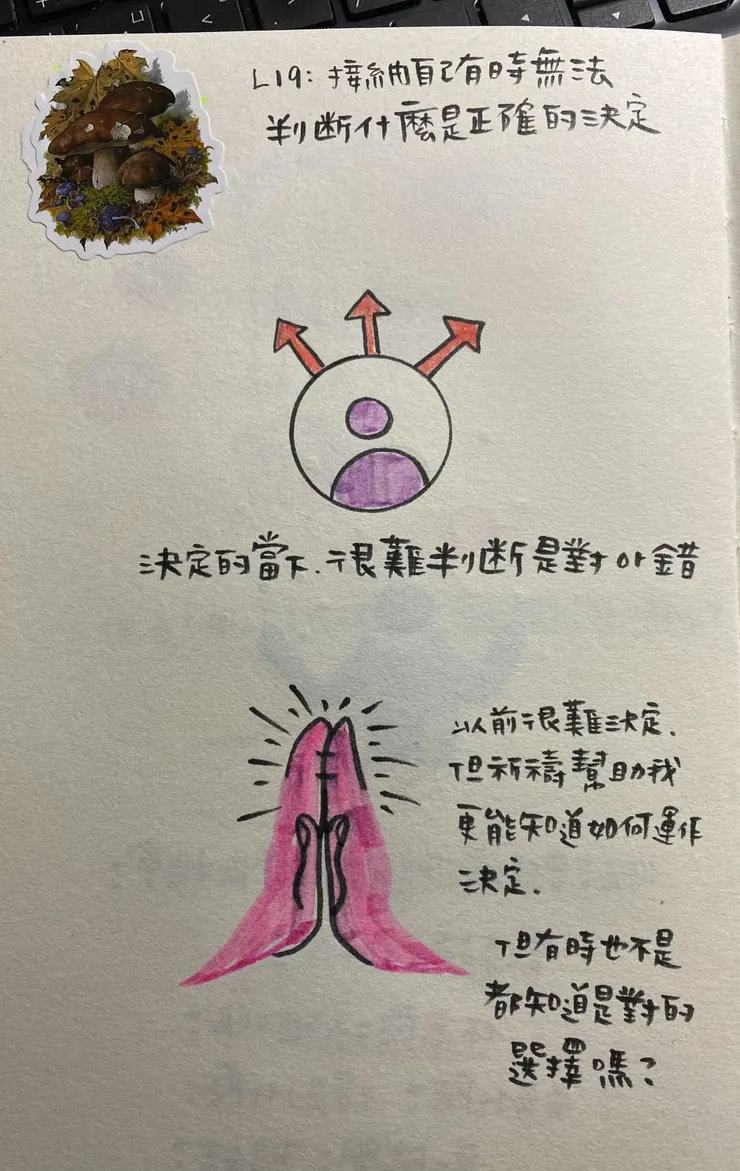 L19: 接納自己有時無法
判斷什麼是正確的決定
決定的當下.很難判斷是對or錯
以前很難決定.
但祈禱幫助我
更能知道如何運作
決定.
但有時也不是
都知道是對的
選擇嗎?